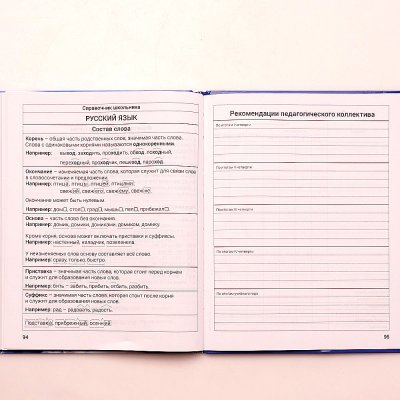 Справочник школьника
РУССКИЙ ЯЗЫК
Состав слова
Корень – общая часть родственных слов, значимая часть слова.
Слова с одинаковыми корнями называются однокоренными.
Например: выход, заходить, проходить, обход, походный,
переходный, проходчик, пешеход, пароход.
Окончание – изменяемая часть слова, которая служит для связи слов
в словосочетании и предложении.
Например: птица, птицы, птицей, птицами;
свежий, свежего, свежему, свежие.
Окончание может быть нулевым.
Например: дом, стол, град, мышь, пел, прибежал.
Основа – часть слова без окончания.
Например: домик, домики, домиками, домиком, домику.
Кроме корня, основа может включать приставки и суффиксы.
Например: настенный, каладчик, позеленела.
У неизменяемых слов основу составляет всё слово.
Например: сразу, только, быстро.
Приставка – значимая часть слова, которая стоит перед корнем
и служит для образования новых слов.
Например: бить – забить, прибить, отбить, разбить.
Суффикс – значимая часть слова, которая стоит после корня
и служит для образования новых слов.
Например: рад – радовать, радость.
Подставка, прибрежный, осенний.
94
Рекомендации педагогического коллектива
По итогам I четверти
По итогам II четверти
По итогам III четверти
По итогам IV четверти
По итогам учебного года
95